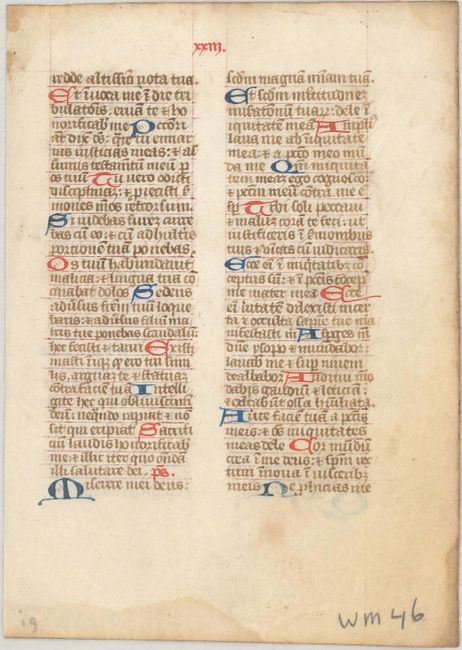 xxiii.
redde altissimo vota tua.
Et iuoca me i die tri
bulatois: eruā te & ho
norificab me Pccōri
aūt dix ds: quē tu enar
ras iusticias meas: & as
sumis testamtū meū p
os tuū Tu vero odisti
disciplinā: & proiecisti s
mones meos retrorsum
Si videbas furez curre
bas cū eo: & cū adultis
porcionem tuā ponebas.
Os tuū habundauit
malicia: & lingua tua cō
cinabat dolos Sedens
adusus frēm tuū loque
baris: & adusus filiū mā
tris tue ponebas scandalū:
hec fecisti & tacui Existi
masti iniq qd ero tui simi
lis, arguā te & statuā
contra faciē tuā Intelli
gite hec qui obliuiscimi
deū: neqūdo rapiat & nō
sit qui eripiat Sacrifi
ciū laudis honorificab
me: & illic iter quo ondā
illi salutare dei. ps.
Miserere mei deus:
scdm magnā miam tuā.
Et scdm multitudinez
miserationū tuarū: dele i
iquitatē meā Ampli
laua me ab iniquitate
mea: & a pcco meo mū
da me Qm iniquita
tem meaz ego cognosco:
& pctm meū contra me ē
sp Tibi soli peccaui
& malū corā te feci: ut
iustificeris i smonibus
tuis & vincas cū iudicaris.
Ecce ei i iniquitatibz cō
ceptus sū: & i pctis concep
me mater mea Ecce
ei uitatē dilexisti incer
ta & occulta sapie tue ma
nifestasti m Asperges me
dne ysopo & mūdabor:
lauab me & sup niuem
dealbabor Auditui mō
dabis gaudiū & leticiā:
& exltabūt ossa humiliata.
Auerte faciē tuā a pctis
meis: & os iniquitates
meas dele Cor mūdū
crea i me deus: & spm rec
tum innoua i visceribz
meis Ne proicias me
ig
WM 46